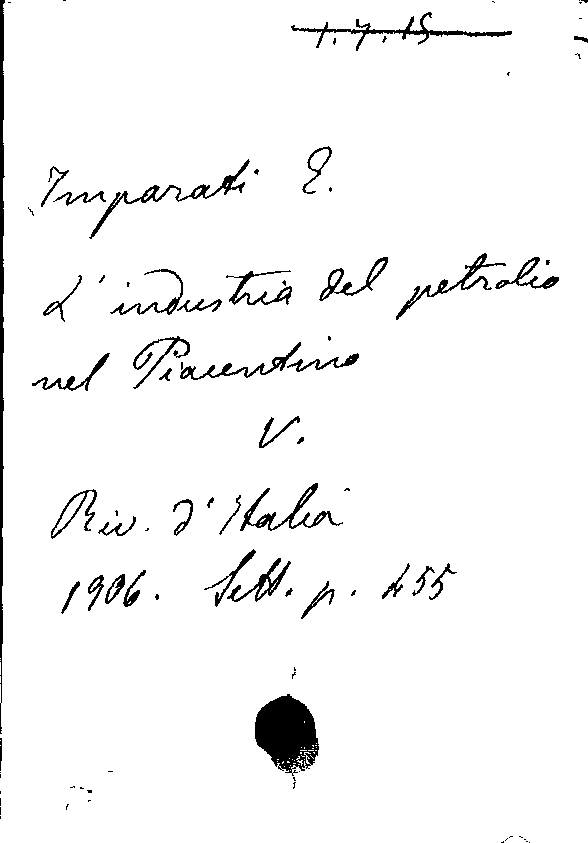 1.7.15
Imparati E.
L'industria del petrolio
nel Piacentino
V.
Riv. d'Italia
1906. Sett. p. 455